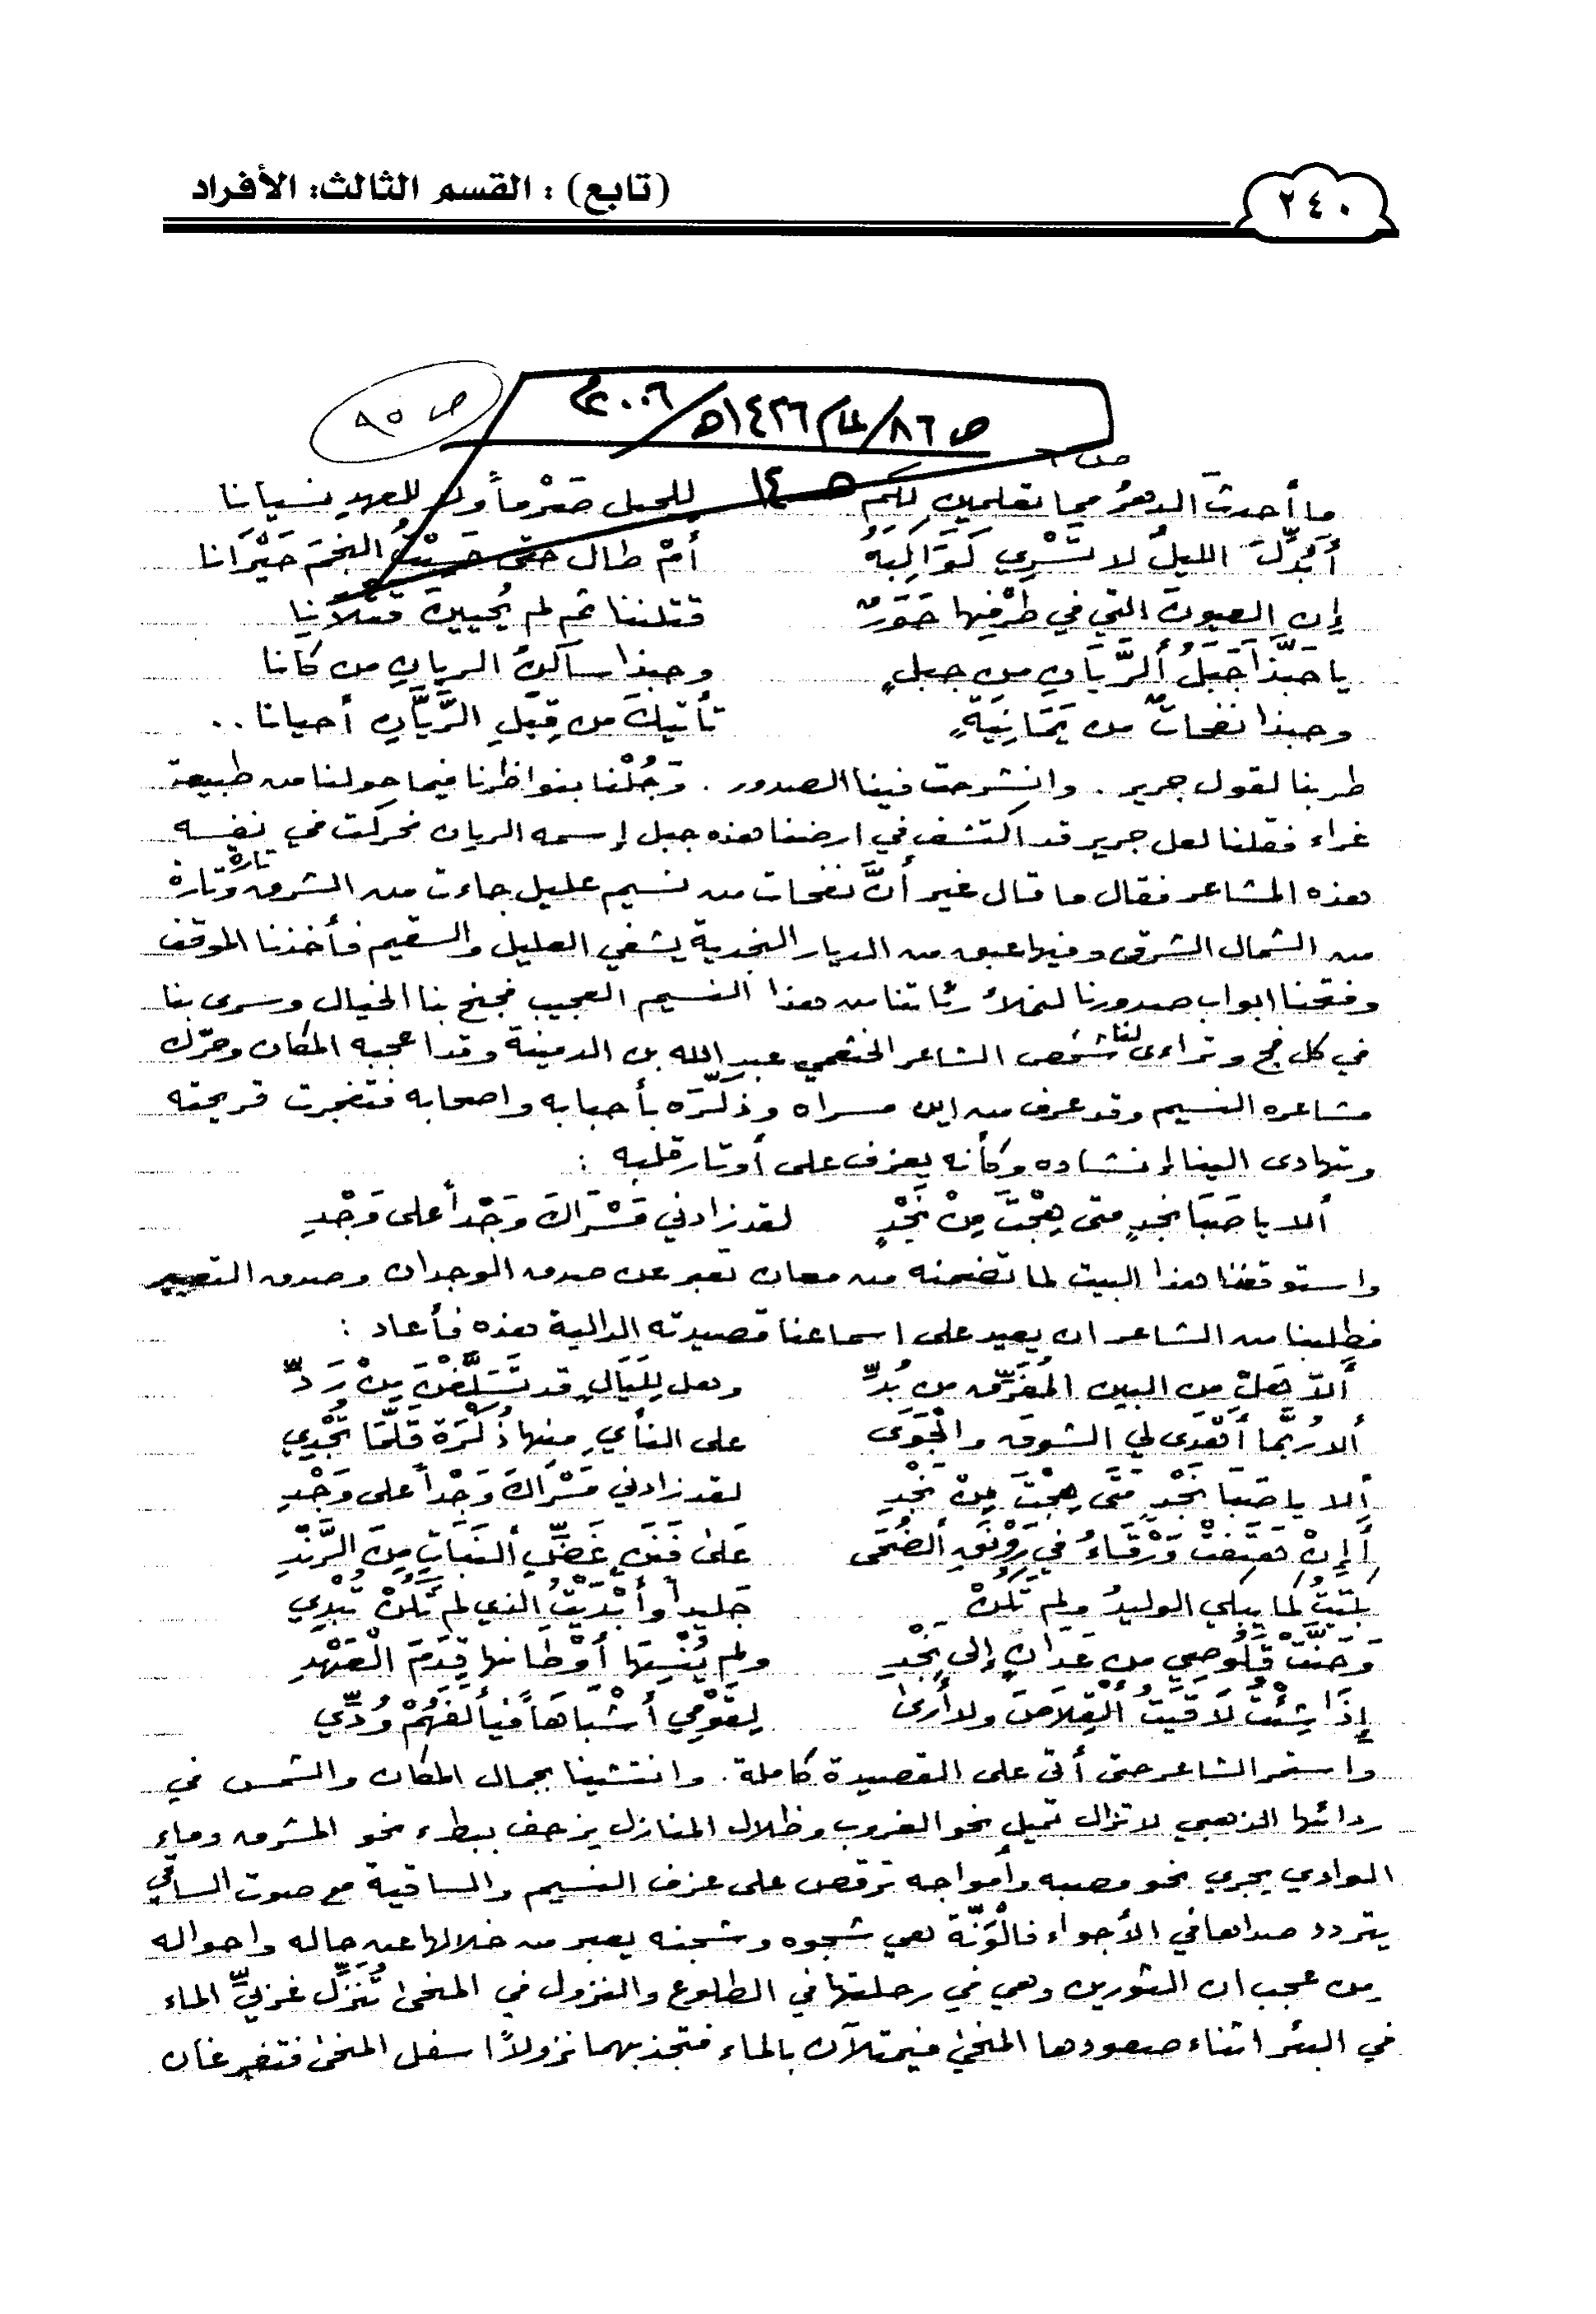 ٢٤٠
(تابع) : القسم الثالث: الأفراد
ص ٨٦/عام ١٤٢٦ه/٢٠٠٦م
ص ٩٥
ما أحدث الدهرُ مما تعلمين لكم للحبل صَرْماً ولا للعهدِ نسيانا
أَبُدِّلَ الليلُ لا تَسْرِي كَوَاكِبُهُ أمْ طال حتى حَسِبْتُ النجمَ حَيْرَانا
إن العيونَ التي في طَرْفِها حَوَرٌ قتلننا ثم لم يُحيينَ قَتْلَانا
يا حَبَّذَا جَبَلُ الرَّيَّانِ من جبلٍ وحبذا ساكنُ الريانِ من كانا
وحبذا نفحاتٌ من يَمَانِيَةٍ تأتيكَ من قِبَلِ الرَّيَّانِ أحيانا..
طربنا لقول جرير . وانشرحت فينا الصدور . وَجُلْنا بنواظرنا فيما حولنا من طبيعة
غراء فقلنا لعل جرير قد اكتشف في ارضنا هذه جبل إسمه الريان فحركت في نفسه
هذه المشاعر فقال ما قال غير أنَّ نفحات من نسيم عليل جاءت تارة من الشرق وتارة
من الشمال الشرقي وفيها عبق من الديار النجدية يشفي العليل والسقيم فأخذنا الموقف
وفتحنا ابواب صدورنا لنملأ رئاتنا من هذا النسيم العجيب فجنح بنا الخيال وسرى بنا
في كل فج وتراءى لنا شخص الشاعر الخثعمي عبد الله بن الدمينة وقد اعجبه المكان وحرّك
مشاعره النسيم وقد عرف من اين مسراه وذكَّرَه بأحبابه واصحابه فتفجرت قريحته
وتهادى الينا إنشاده وكأنه يعزف على أوتار قلبه :
ألا يا صَبَا نجدٍ متى هِجْتَ مِنْ نَجْدٍ لقد زادني مَسْرَاكَ وَجْداً على وَجْدِ
واستوقفنا هذا البيت لما تضمنه من معان تعبر عن صدق الوجدان وصدق التعبير
فطلبنا من الشاعر ان يعيد على اسماعنا قصيدته الدالية هذه فأعاد :
ألا هَلْ مِنَ البين المُفَرِّقِ من بُدِّ وهل لِلَيَالٍ قد تَسَلَّفْنَ مِنْ رَدِّ
ألا رُبَّما أَهْدَى لي الشوقَ والْجَوَى على النأي منها ذُكْرَةٌ قَلَّمَا تُجْدِي
ألا يا صَبَا نَجْدٍ مَتَى هِجْتَ مِنْ نَجْدِ لقد زادني مَسْرَاكَ وَجْداً على وَجْدِ
أَإِنْ هَتَفَتْ وَرْقَاءُ في رَوْنَقِ الضُّحَى عَلَى فَنَنٍ غَضِّ النَبَاتِ مِنَ الرَّنْدِ
بَكَيْتُ لما يبكي الوليدُ ولم تَكُنْ جَليداً وأَبْدَيْتُ الذي لم تَكُنْ تُبْدِي
وَحَنَّتْ قَلُوصِي من عَدَانٍ إلى نَجْدِ ولم يُنْسِهَا أَوْطَانَهَا قِدَمُ الْعَهْدِ
إذَا شِئْتُ لَاقَيْتُ الْقِلَاصَ ولا أَرَى لِقَوْمِي أَشْبَاهَاً فَيَأْلَفَهُمْ وُدِّي
واستمر الشاعر حتى أتى على القصيدة كاملة . وانتشينا بجمال المكان والشمس في
ردائها الذهبي لا تزال تميل نحو الغروب وظلال المنازل يزحف ببطء نحو المشرق وماء
الوادي يجري نحو مصبه وأمواجه ترقص على عزف النسيم والساقية مع صوت الساقي
يتردد صداها في الأجواء فالْوَنّة هي شجوه وشجنه يعبر من خلالها عن حاله واحواله
من عجب ان الثورين وهي في رحلتها في الطلوع والنزول في المنحى تُنَزِّل غَرْبيِّ الماء
في البئر اثناء صعودها المنحى فيمتلآن بالماء فتجذبهما نزولاً اسفل المنحى فتفرغان